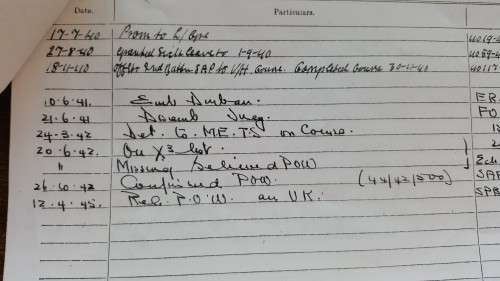 Date. Particulars.
17-7-40 Prom to L/Cpl
27-8-40 Granted Sick Leave to 1-9-40
18-11-40 2nd Battn SAP to Course. Completed Course 30-11-40
10.6.41. Emb Durban.
21.6.41 Disemb Suez.
24-3-42 Det. to M.E.T.S on Course.
20.6.42. On X3 list.
" Missing believed POW
26.10.42 Confirmed POW. (44/43/500)
12.4.45. Rel. P.O.W. arr U.K.